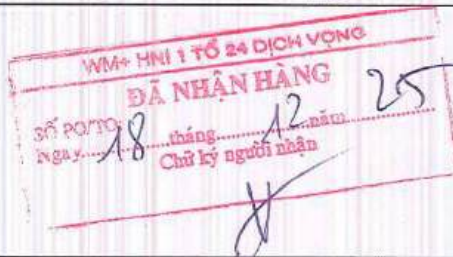 WM+ HNI 1 TỔ 24 DỊCH VỌNG
ĐÃ NHẬN HÀNG
SỐ PO/TO:
Ngày 18 tháng 12 năm 25
Chữ ký người nhận